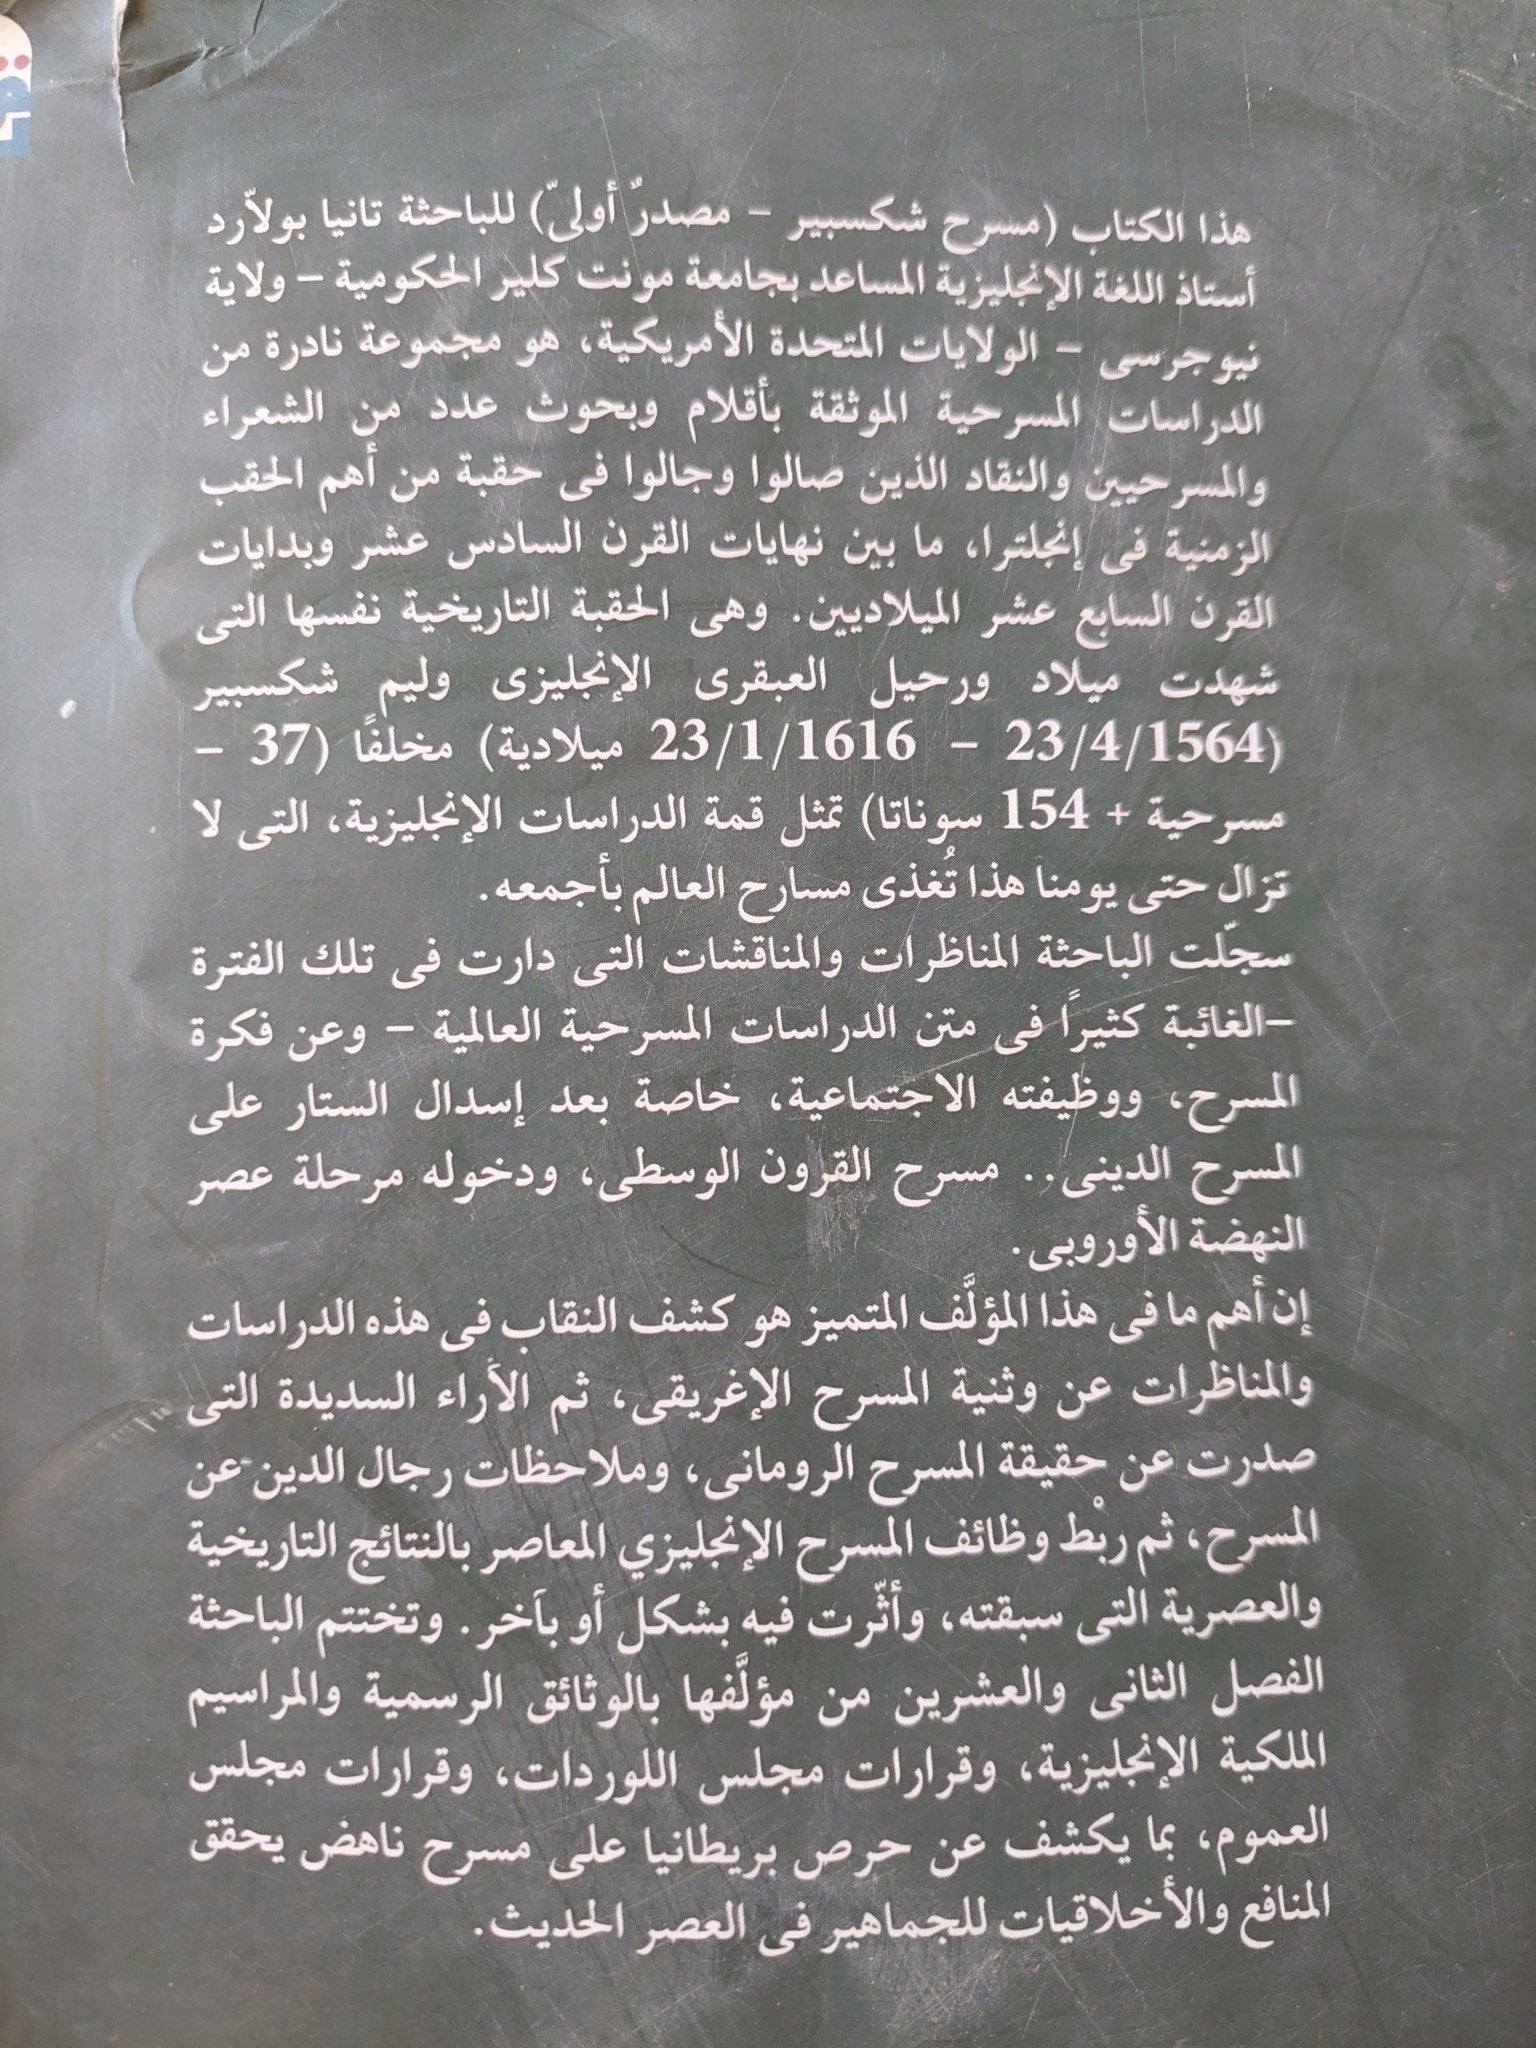 هذا الكتاب (مسرح شكسبير – مصدرٌ أولىّ) للباحثة تانيا بولاّرد
أستاذ اللغة الإنجليزية المساعد بجامعة مونت كلير الحكومية – ولاية
نيوجرسى – الولايات المتحدة الأمريكية، هو مجموعة نادرة من
الدراسات المسرحية الموثقة بأقلام وبحوث عدد من الشعراء
والمسرحيين والنقاد الذين صالوا وجالوا فى حقبة من أهم الحقب
الزمنية فى إنجلترا، ما بين نهايات القرن السادس عشر وبدايات
القرن السابع عشر الميلاديين. وهى الحقبة التاريخية نفسها التى
شهدت ميلاد ورحيل العبقرى الإنجليزى وليم شكسبير
(23/4/1564 – 23/1/1616 ميلادية) مخلفًا (37 –
مسرحية + 154 سوناتا) تمثل قمة الدراسات الإنجليزية، التى لا
تزال حتى يومنا هذا تُغذى مسارح العالم بأجمعه.
سجّلت الباحثة المناظرات والمناقشات التى دارت فى تلك الفترة
–الغائبة كثيرًا فى متن الدراسات المسرحية العالمية – وعن فكرة
المسرح، ووظيفته الاجتماعية، خاصة بعد إسدال الستار على
المسرح الدينى.. مسرح القرون الوسطى، ودخوله مرحلة عصر
النهضة الأوروبى.
إن أهم ما فى هذا المؤلَّف المتميز هو كشف النقاب فى هذه الدراسات
والمناظرات عن وثنية المسرح الإغريقى، ثم الأراء السديدة التى
صدرت عن حقيقة المسرح الرومانى، وملاحظات رجال الدين عن
المسرح، ثم ربْط وظائف المسرح الإنجليزي المعاصر بالنتائج التاريخية
والعصرية التى سبقته، وأثّرت فيه بشكل أو بآخر. وتختتم الباحثة
الفصل الثانى والعشرين من مؤلَّفها بالوثائق الرسمية والمراسيم
الملكية الإنجليزية، وقرارات مجلس اللوردات، وقرارات مجلس
العموم، بما يكشف عن حرص بريطانيا على مسرح ناهض يحقق
المنافع والأخلاقيات للجماهير فى العصر الحديث.